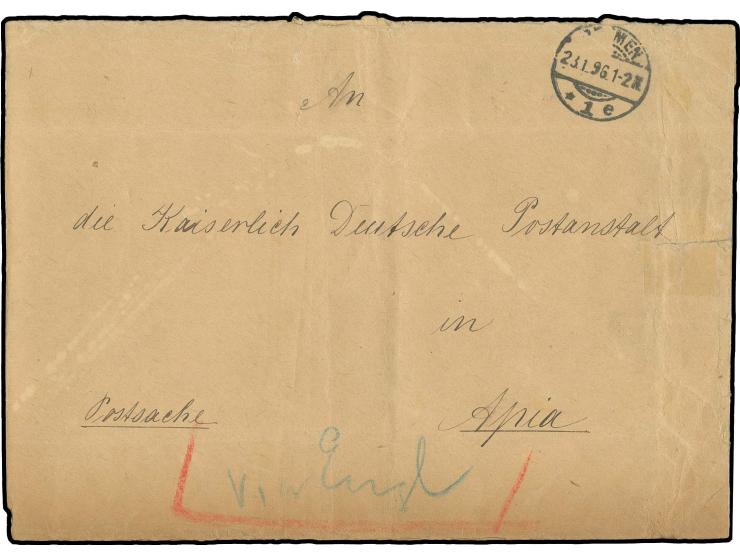 MEN
23.1.96.1-2N.
* 1 e
An
die Kaiserlich Deutsche Postanstalt
in
Postsache
Apia
via Engl